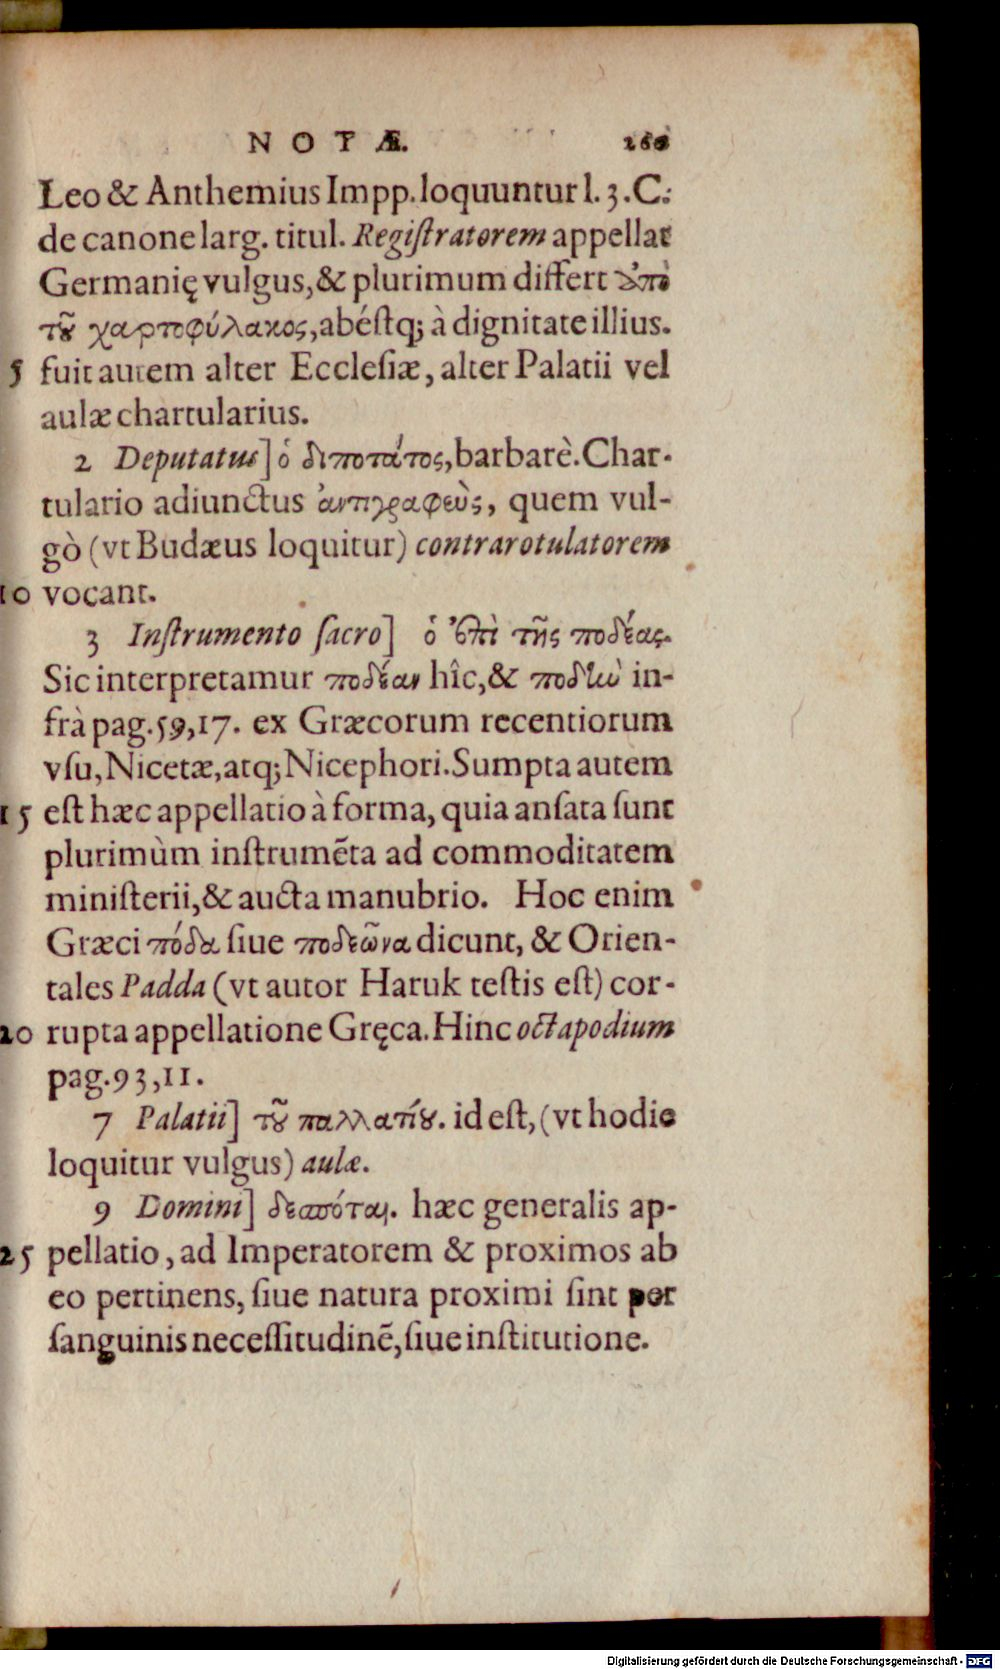 NOTÆ.
Leo & Anthemius Impp. loquuntur l. 3. C.
de canone larg. titul. Regiſtratorem appellat
Germanię vulgus, & plurimum differt ἀπὸ
τοῦ χαρτοφύλακος, abéſtq; à dignitate illius.
5 fuit autem alter Eccleſiæ, alter Palatii vel
aulæ chartularius.
2 Deputatus] ὁ διποτάτος, barbarè. Char-
tulario adiunctus ἀντιγραφεὺς, quem vul-
gò (vt Budæus loquitur) contrarotulatorem
10 vocant.
3 Inſtrumento ſacro] ὁ ἐπὶ τῆς ποδέας.
Sic interpretamur ποδέαν hîc, & ποδὴν in-
frà pag. 59, 17. ex Græcorum recentiorum
vſu, Nicetæ, atq; Nicephori. Sumpta autem
15 eſt hæc appellatio à forma, quia anſata ſunt
plurimùm inſtrumẽta ad commoditatem
miniſterii, & aucta manubrio. Hoc enim
Græci πόδα ſiue ποδεῶνα dicunt, & Orien-
tales Padda (vt autor Haruk teſtis eſt) cor-
20 rupta appellatione Gręca. Hinc octapodium
pag. 93, 11.
7 Palatii] τοῦ παλλατίου. id eſt, (vt hodie
loquitur vulgus) aulæ.
9 Domini] δεσπόται. hæc generalis ap-
25 pellatio, ad Imperatorem & proximos ab
eo pertinens, ſiue natura proximi ſint per
ſanguinis neceſſitudinẽ, ſiue inſtitutione.
Digitalisierung gefördert durch die Deutsche Forschungsgemeinschaft - DFG